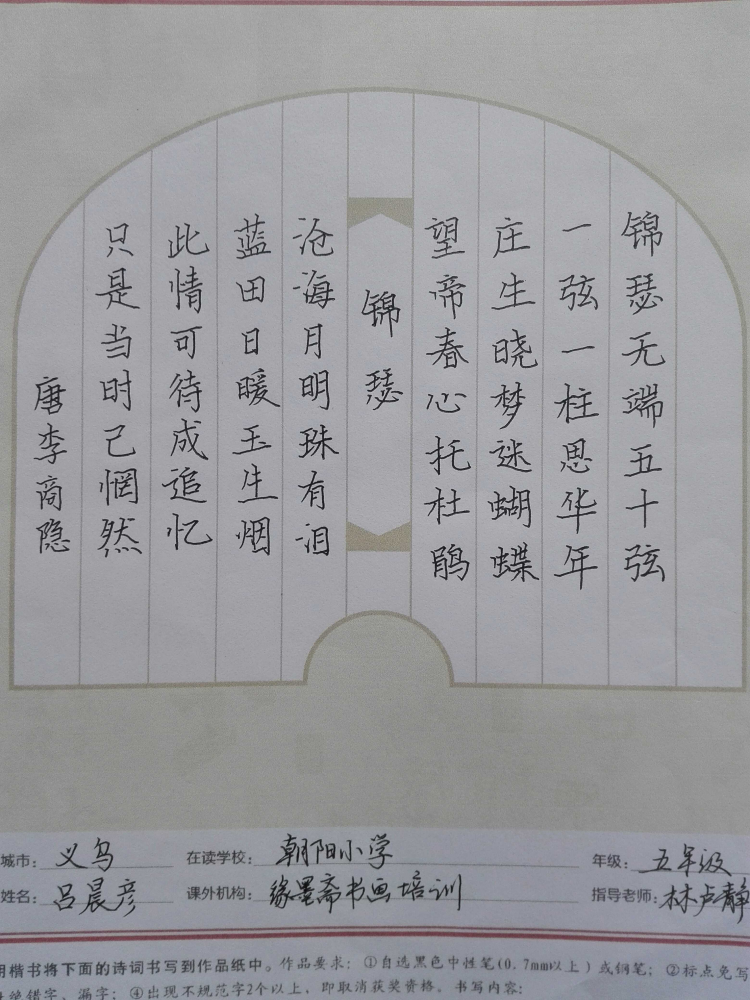 锦瑟无端五十弦
一弦一柱思华年
庄生晓梦迷蝴蝶
望帝春心托杜鹃
锦瑟
沧海月明珠有泪
蓝田日暖玉生烟
此情可待成追忆
只是当时已惘然
唐李商隐
城市: 义乌 在读学校: 朝阳小学 年级: 五年级
姓名: 吕晨彦 课外机构: 缘墨斋书画培训 指导老师: 林卢静
用楷书将下面的诗词书写到作品纸中。作品要求: ①自选黑色中性笔(0.7mm以上)或钢笔; ②标点免写
绝错字、漏字; ④出现不规范字2个以上, 即取消获奖资格。书写内容: